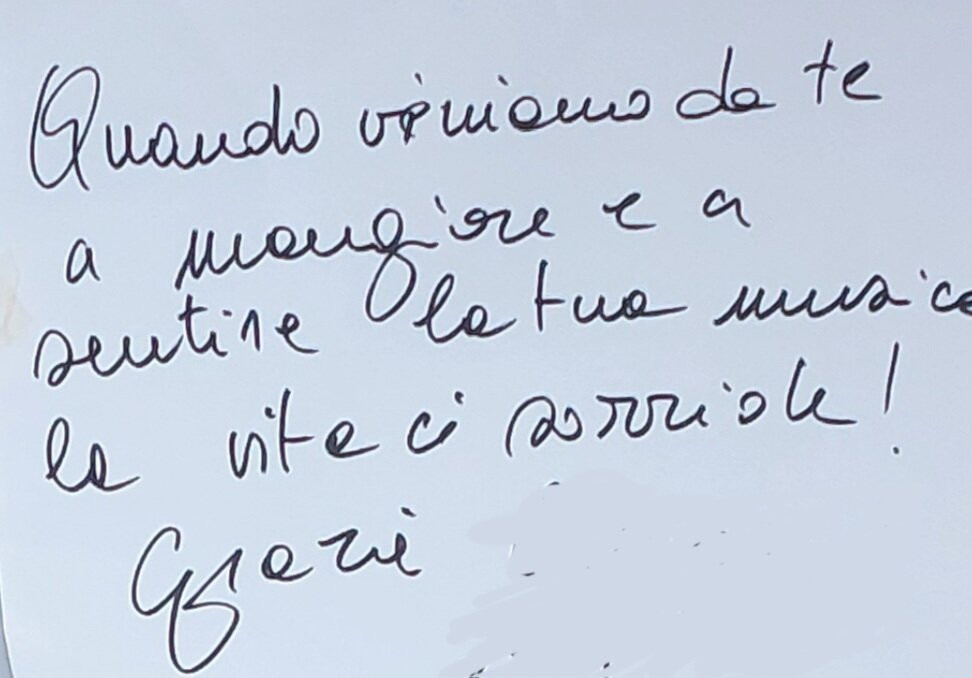 Quando veniamo da te
a mangiare e a
sentire la tua musica
la vita ci sorride!
Grazie